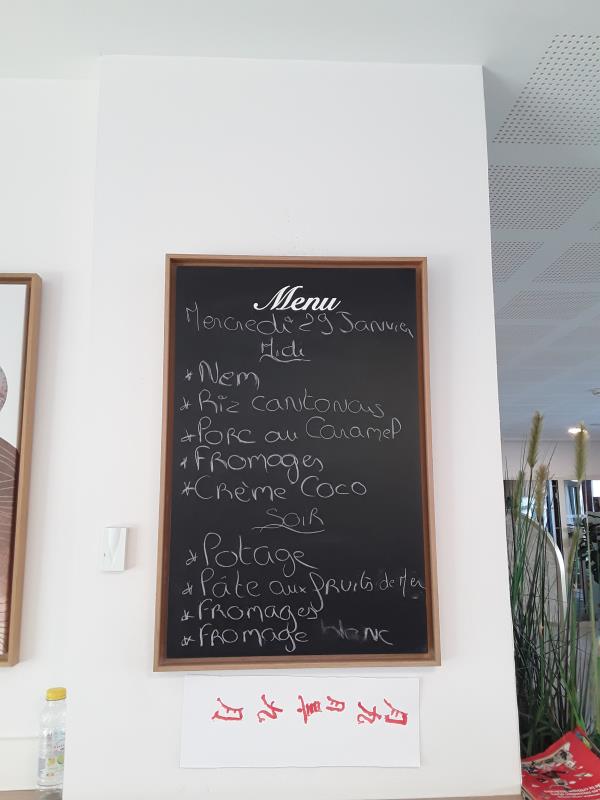 Menu
Mercredi 29 Janvier
Midi
* Nem
* Riz cantonais
* Porc au Caramel
* Fromages
* Crème Coco
SOIR
* Potage
* Pâte aux fruits de Mer
* Fromages
* Fromage blanc